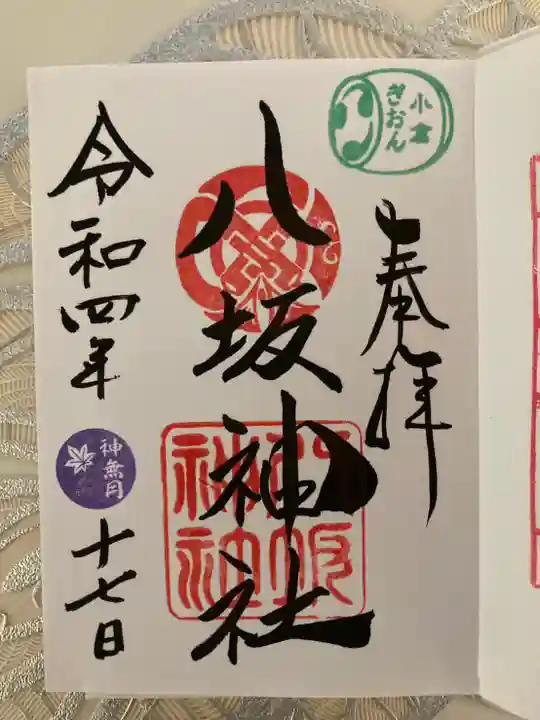 小倉
ぎおん
奉拝
八坂神社
八阪
神社
令和四年
神無月
十七日